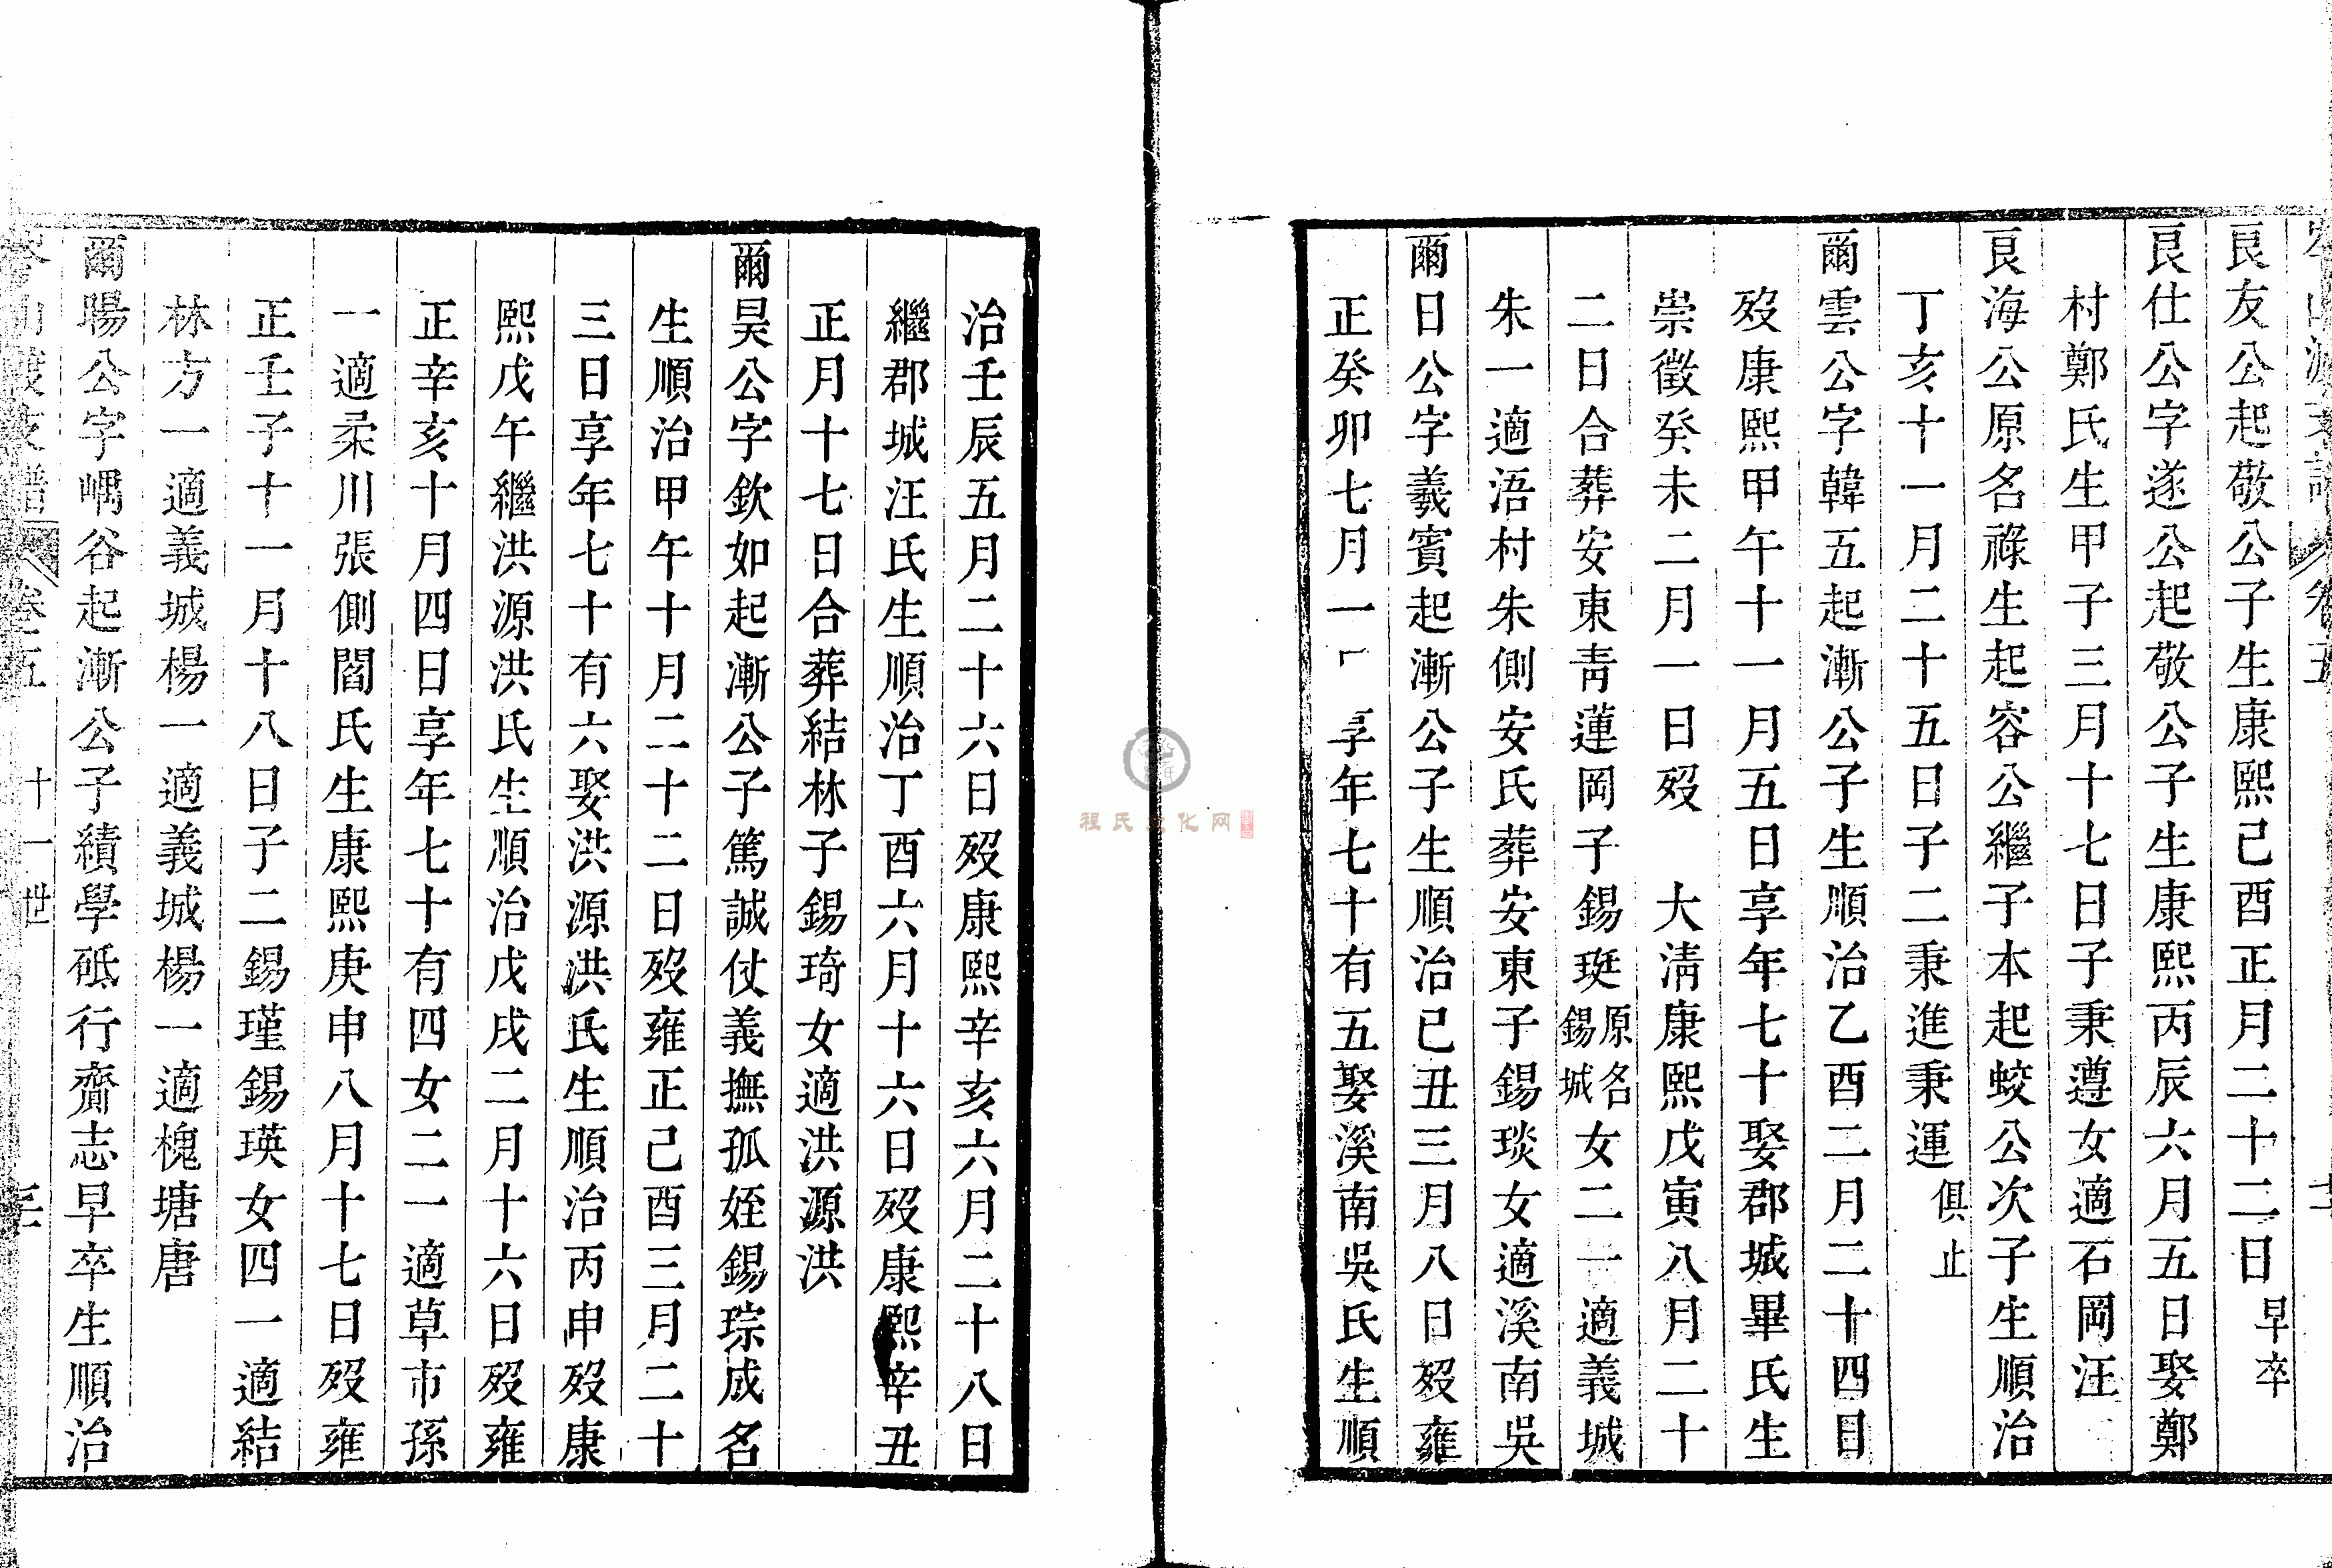 良友公起敬公子生康熙己酉正月二十二日早卒
良仕公字遂公起敬公子生康熙丙辰六月五日娶鄭
村鄭氏生甲子三月十七日子秉遵女適石岡汪
良海公原名祿生起容公繼子本起蛟公次子生順治
丁亥十一月二十五日子二秉進秉運俱止
爾雲公字韓五起漸公子生順治乙酉二月二十四目
歿康熙甲午十一月五日享年七十娶郡城畢氏生
崇徵癸未二月一日歿 大淸康熙戊寅八月二十
二日合葬安東靑蓮岡子錫珽原名錫城女二一適義城
朱一適浯村朱側安氏葬安東子錫琰女適溪南吳
爾日公字羲賓起漸公子生順治已丑三月八日歿雍
正癸卯七月一 享年七十有五娶溪南吳氏生順
治壬辰五月二十六日歿康熙辛亥六月二十八日
繼郡城汪氏生順治丁酉六月十六日歿康熙辛丑
正月十七日合葬結林子錫琦女適洪源洪
爾昊公字欽如起漸公子篤誠仗義撫孤姪錫琮成名
生順治甲午十月二十二日歿雍正己酉三月二十
三日享年七十有六娶洪源洪氏生順治丙申歿康
熙戊午繼洪源洪氏生順治戊戌二月十六日歿雍
正辛亥十月四日享年七十有四女二一適草市孫
一適柔川張側閻氏生康熙庚申八月十七日歿雍
正壬子十一月十八日子二錫瑾錫瑛女四一適結
林方一適義城楊一適義城楊一適槐塘唐
爾暘公字嵎谷起漸公子績學砥行齎志早卒生順治
卷五 十一世
程氏文化网